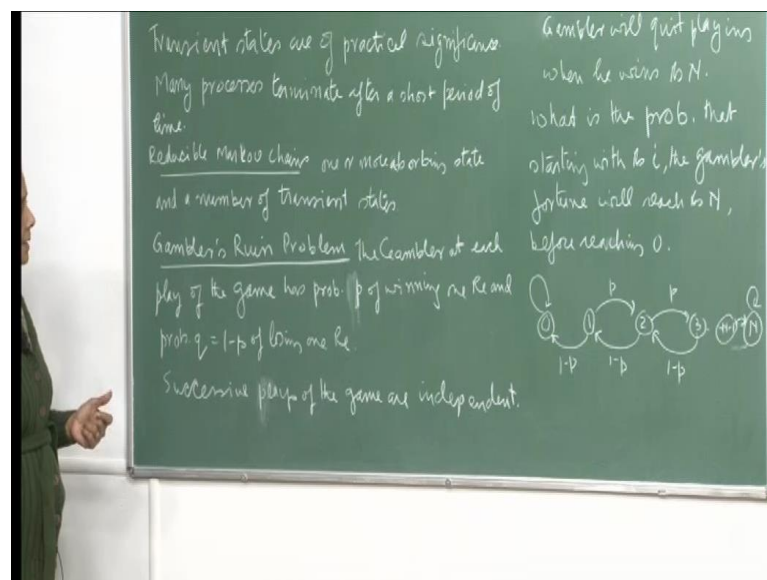 Transient states are of practical significance.
Many processes terminate after a short period of
time.
Reducible Markov Chains one or more absorbing state
and a number of transient states
Gambler's Ruin Problem The Gambler at each
play of the game has prob. p of winning one Re and
prob. q = 1-p of losing one Re.
Successive plays of the game are independent.
Gambler will quit playing
when he wins Rs N.
What is the prob. that
starting with Rs i, the gambler's
fortune will reach Rs N,
before reaching 0.
p p
0 1 2 3 N-1 N
1-p 1-p 1-p